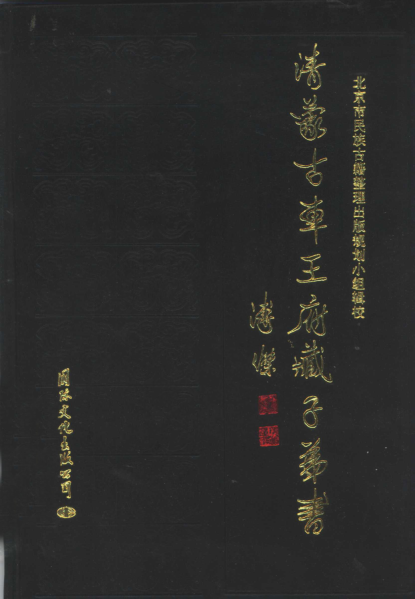 北京市民族古籍整理出版规划小组辑校
清蒙古车王府藏子弟书
溥杰
国际文化出版公司